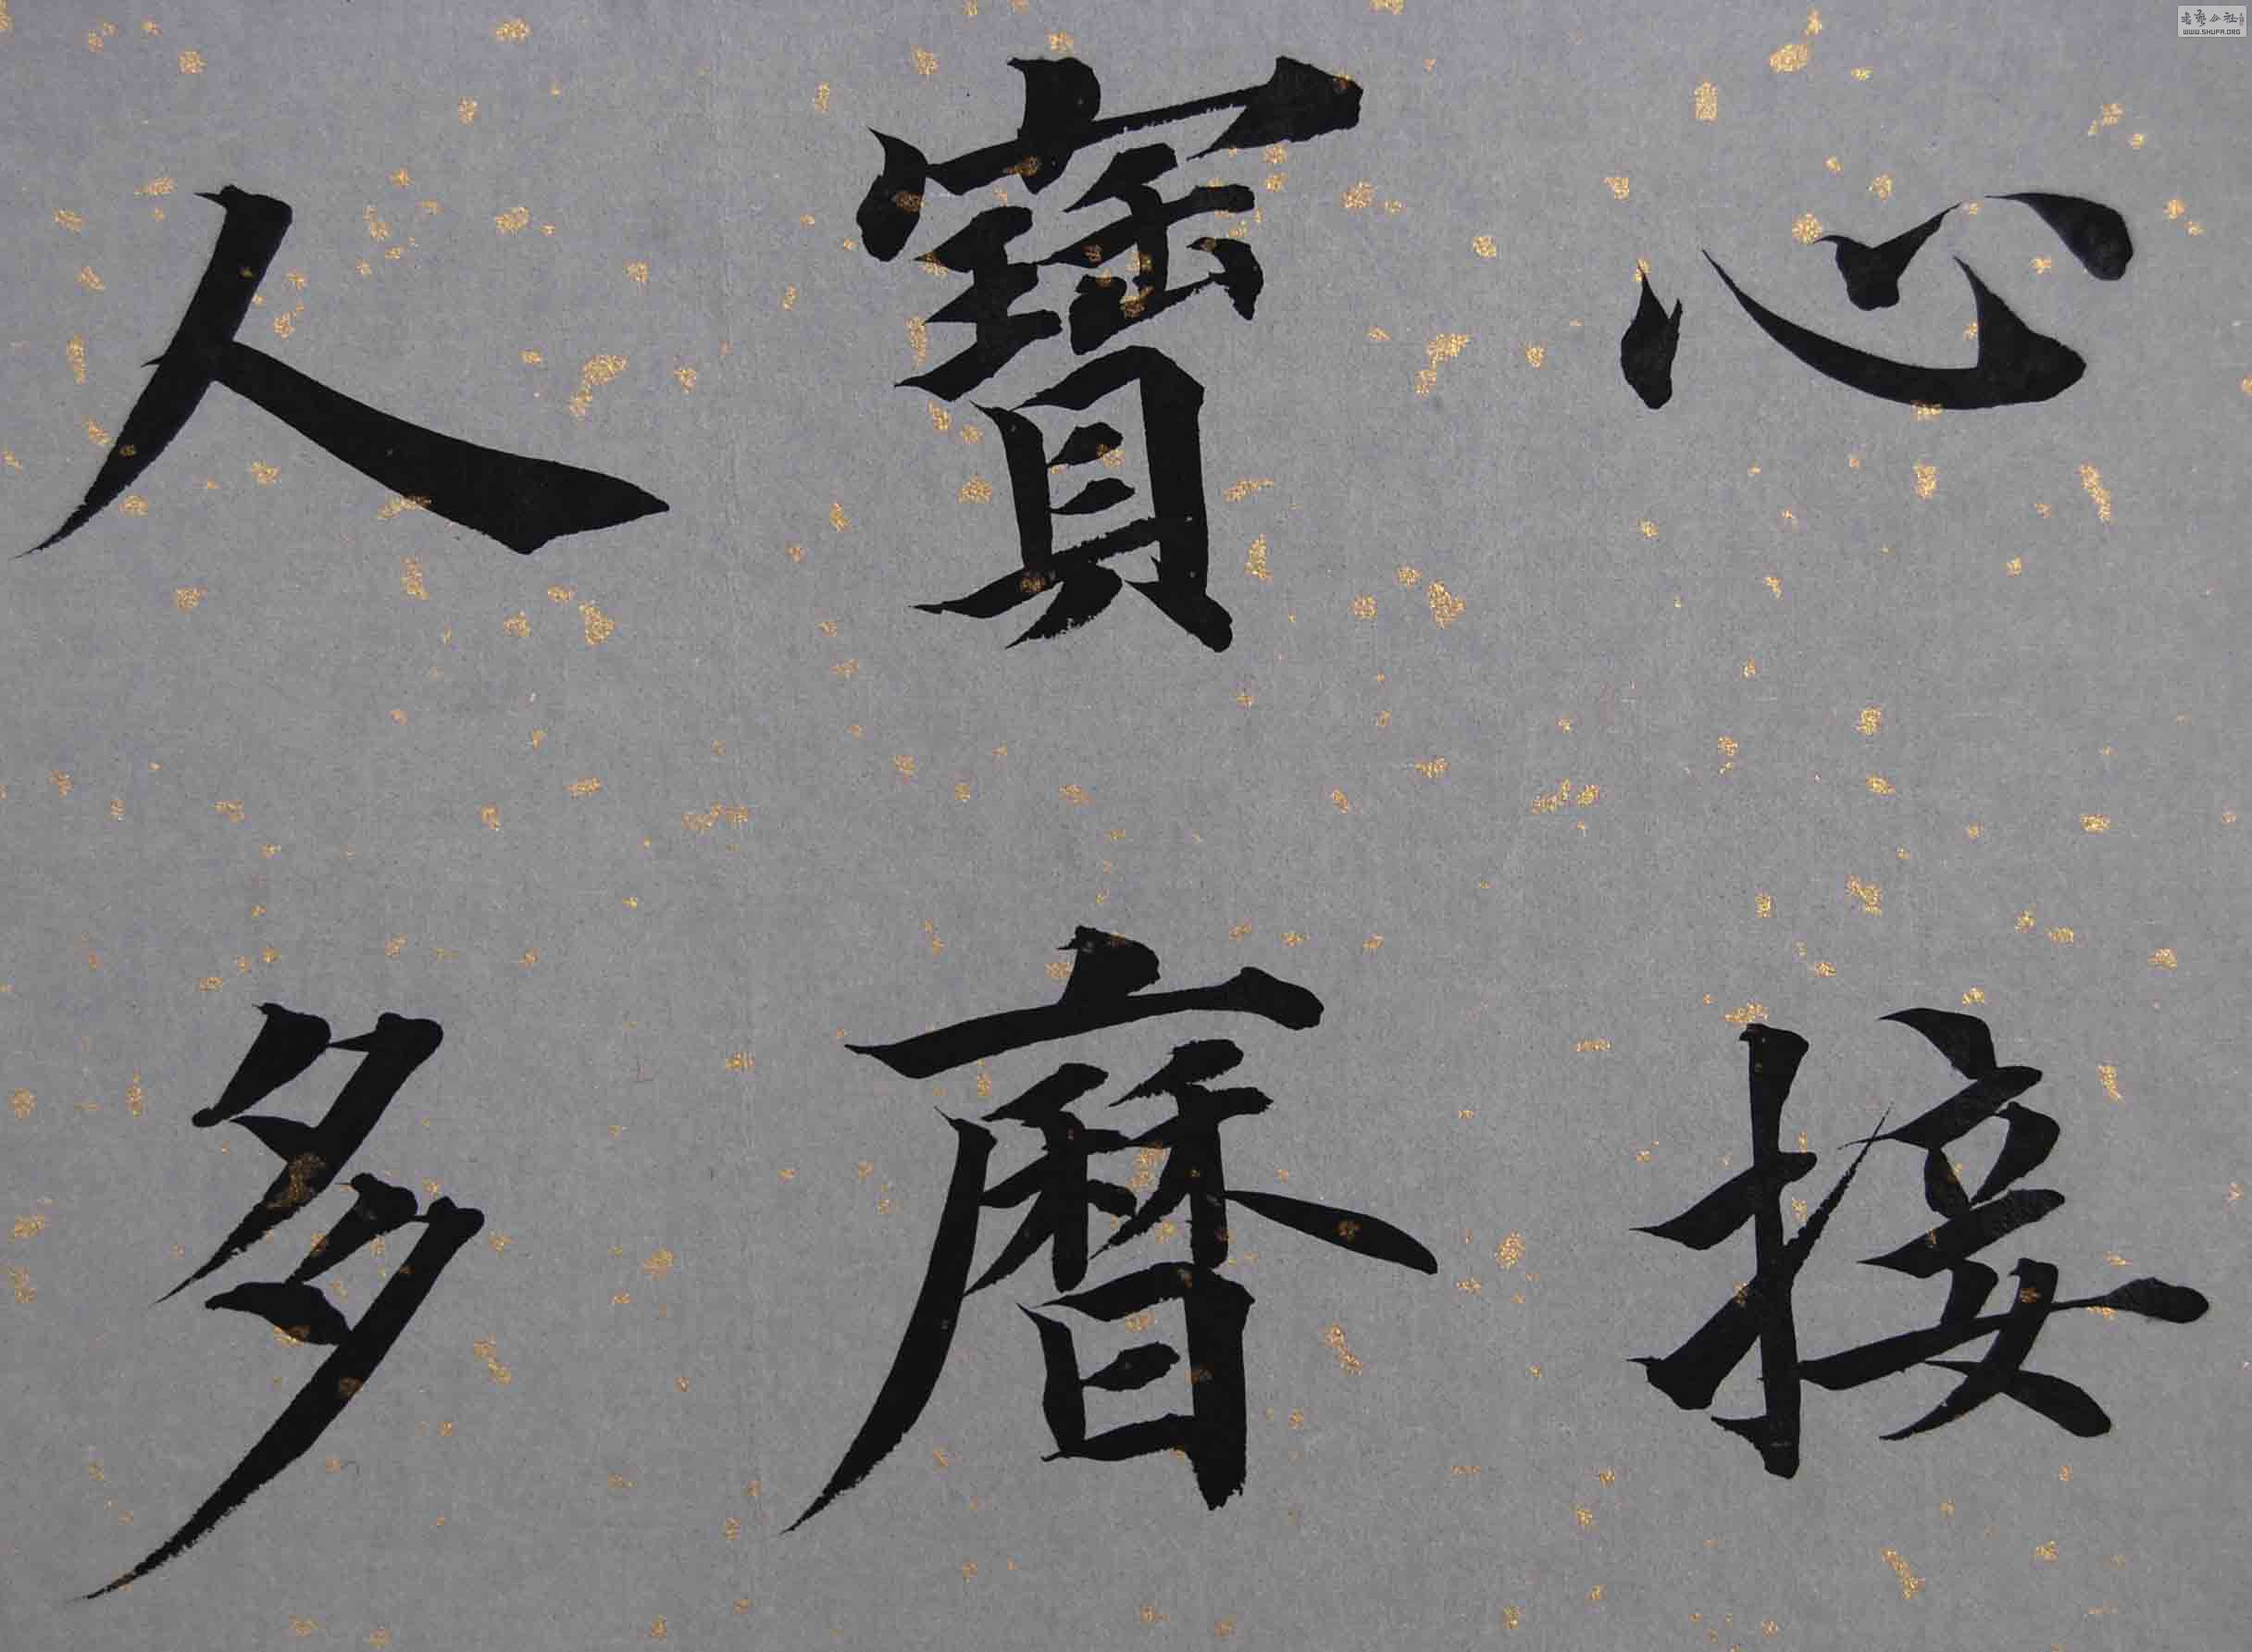 心接
寶曆
人多
书艺公社
WWW.SHUFA.ORG